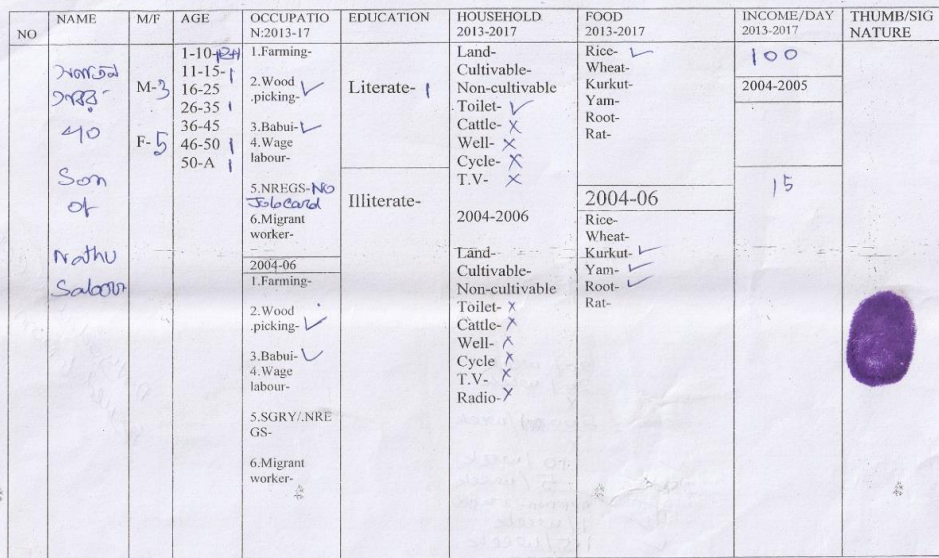 NO
NAME
M/F
AGE
OCCUPATIO
N:2013-17
EDUCATION
HOUSEHOLD
2013-2017
FOOD
2013-2017
INCOME/DAY
2013-2017
THUMB/SIG
NATURE
সনাতন
সবর
40
Son
of
Nathu
Sabar
M-3
F-5
1-10-
11-15-1
16-25
26-35 1
36-45
46-50 1
50-A 1
1.Farming-
2.Wood
.picking-✓
3.Babui-✓
4.Wage
labour-
5.NREGS-NO
Jobcard
6.Migrant
worker-
2004-06
1.Farming-
2.Wood
.picking-✓
3.Babui-✓
4.Wage
labour-
5.SGRY/.NRE
GS-
6.Migrant
worker-
Literate-1
Illiterate-
Land-
Cultivable-
Non-cultivable
Toilet-✓
Cattle-X
Well-X
Cycle-X
T.V-X
2004-2006
Land-
Cultivable-
Non-cultivable
Toilet-X
Cattle-X
Well-X
Cycle X
T.V-X
Radio-X
Rice-✓
Wheat-
Kurkut-
Yam-
Root-
Rat-
2004-06
Rice-
Wheat-
Kurkut-✓
Yam-✓
Root-✓
Rat-
100
2004-2005
15